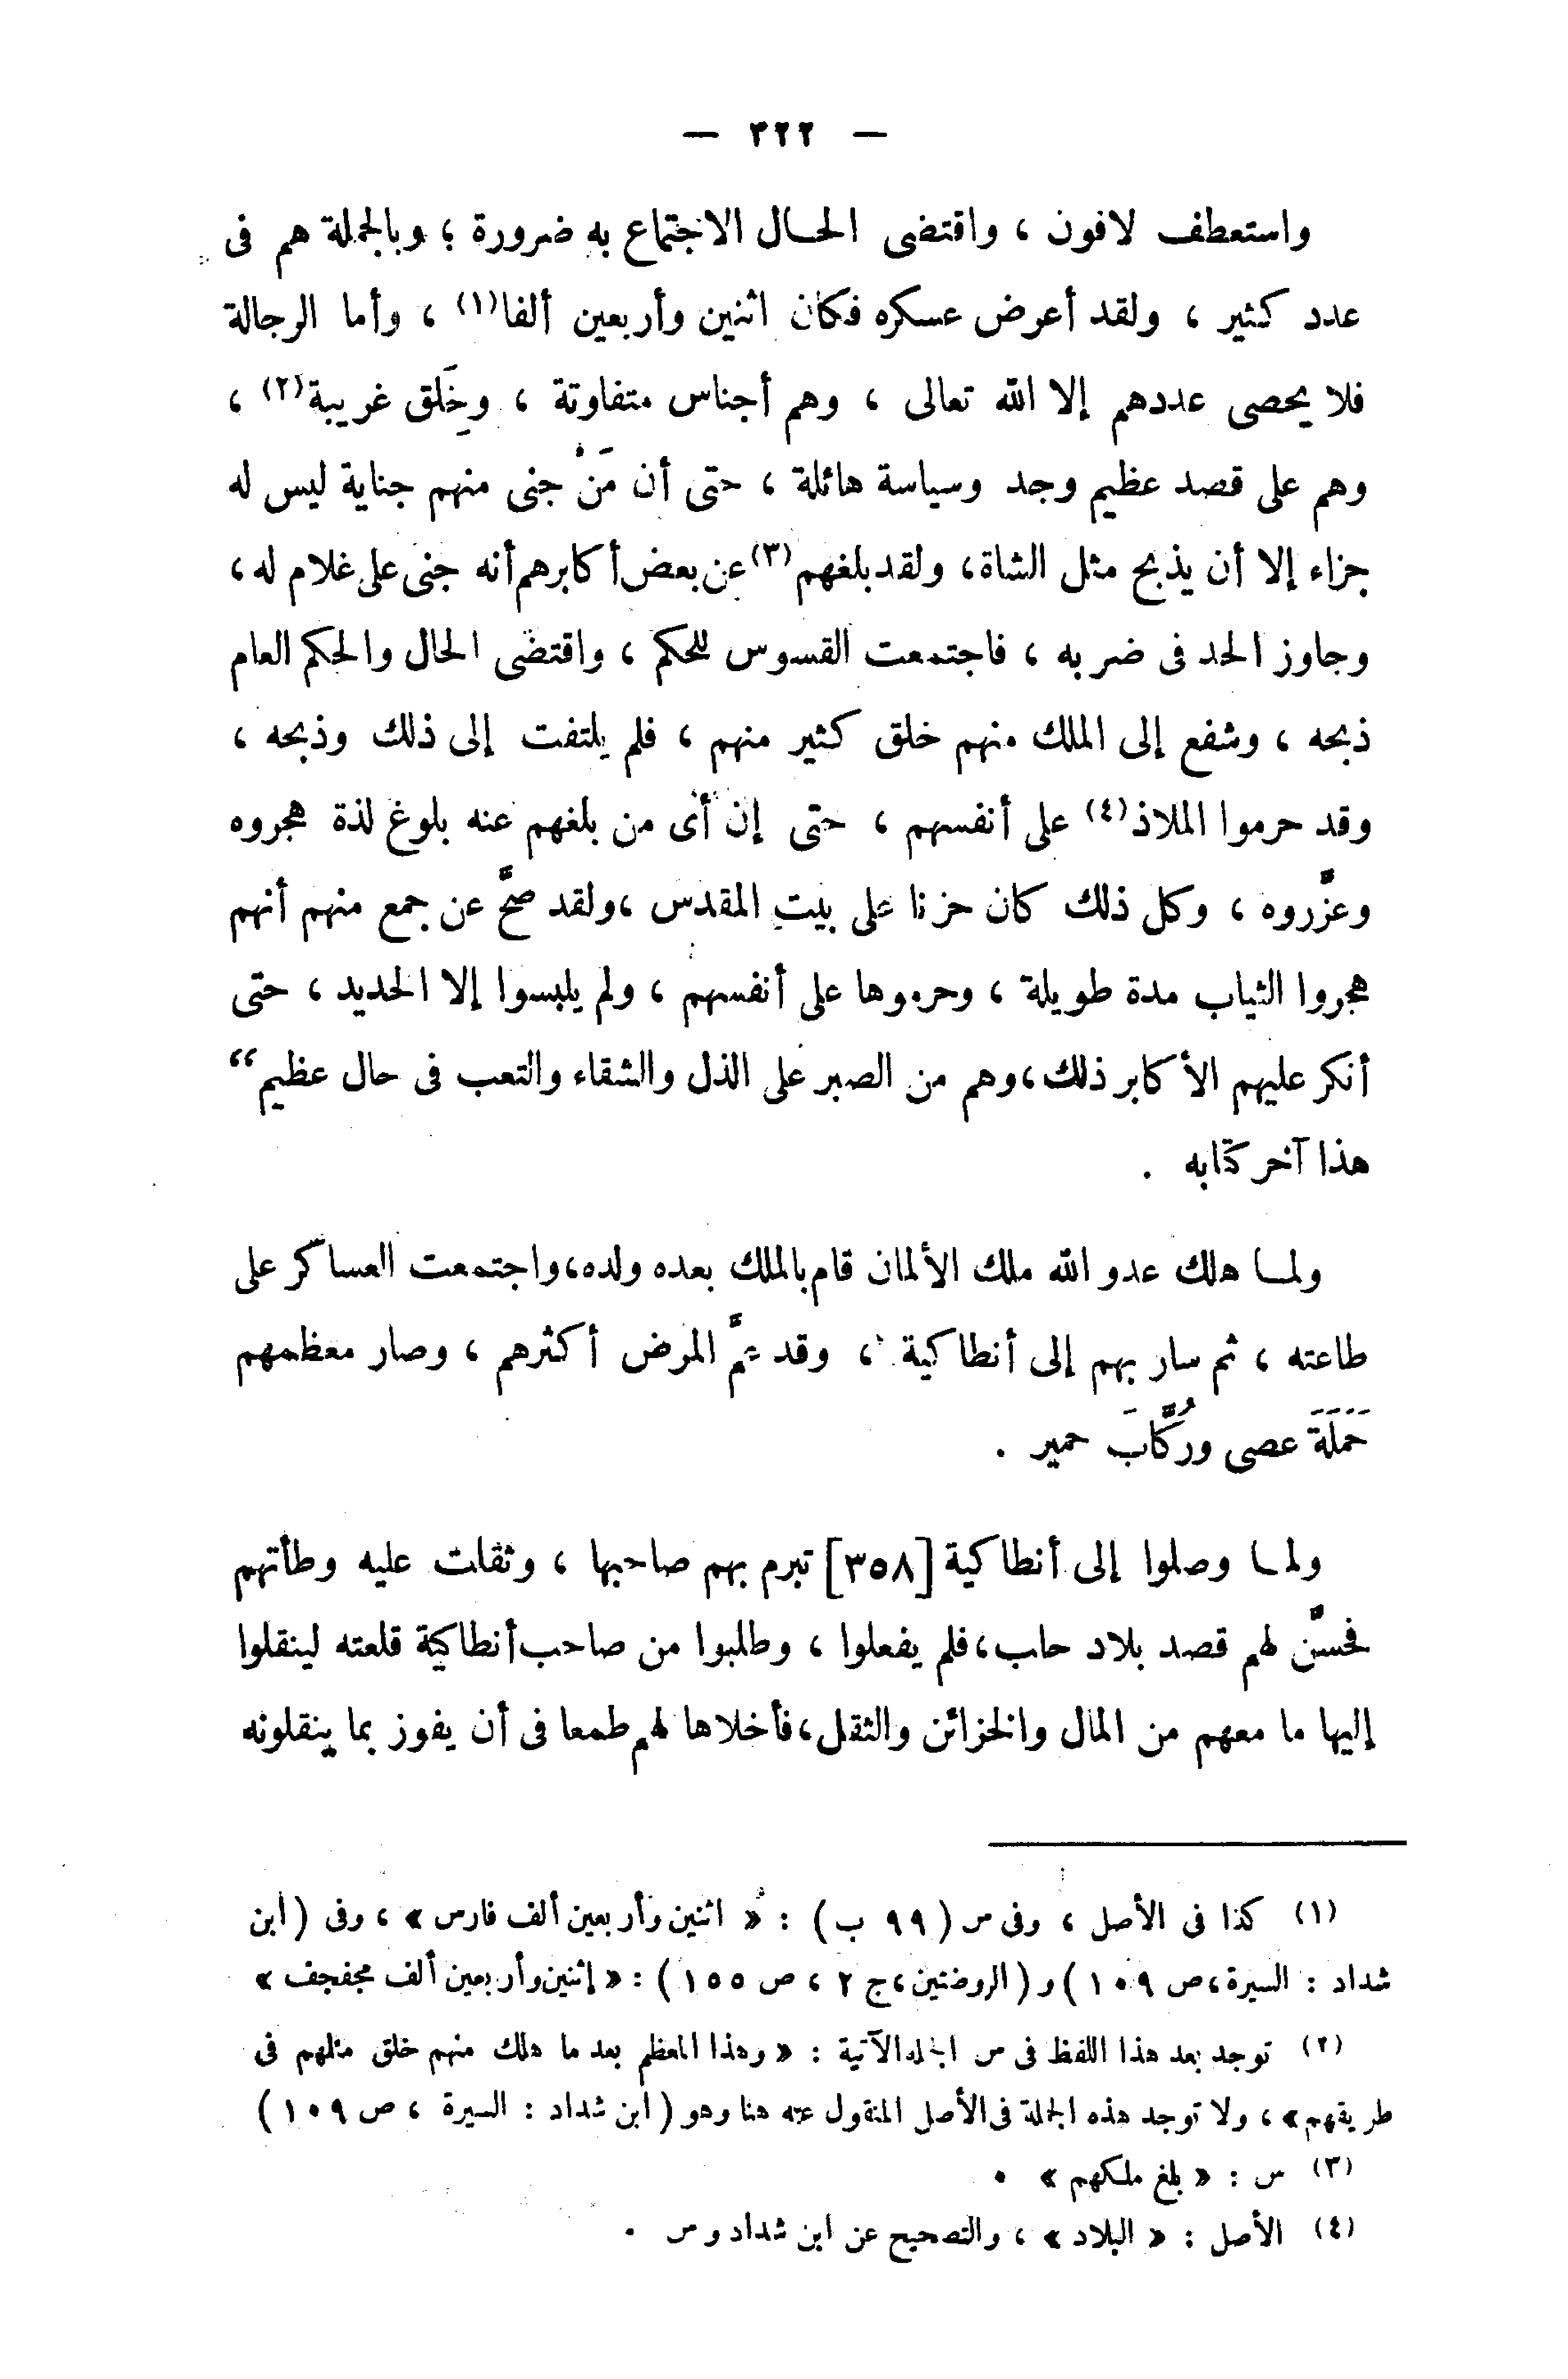 — ٣٢٢ —
واستعطف لافون ، واقتضى الحال الاجتماع به ضرورة ؛ وبالجملة هم فى
عدد كثير ، ولقد أعرض عسكره فكان اثنين وأربعين ألفا(١) ، وأما الرجالة
فلا يحصى عددهم إلا الله تعالى ، وهم أجناس متفاوتة ، وخَلِق غريبة(٢) ،
وهم على قصد عظيم وجد وسياسة هائلة ، حتى أن مَنْ جنى منهم جناية ليس له
جزاء إلا أن يذبح مثل الشاة، ولقد بلغهم(٣) عن بعض أكابرهم أنه جنى على غلام له ،
وجاوز الحد فى ضربه ، فاجتمعت القسوس للحكم ، واقتضى الحال والحكم العام
ذبحه ، وشفع إلى الملك منهم خلق كثير منهم ، فلم يلتفت إلى ذلك وذبحه ،
وقد حرموا الملاذ(٤) على أنفسهم ، حتى إن أى من بلغهم عنه بلوغ لذة هجروه
وعزَّروه ، وكل ذلك كان حزنا على بيت المقدس ،ولقد صحَّ عن جمع منهم أنهم
هجروا الثياب مدة طويلة ، وحرموها على أنفسهم ، ولم يلبسوا إلا الحديد ، حتى
أنكر عليهم الأكابر ذلك ،وهم من الصبر على الذل والشقاء والتعب فى حال عظيم“
هذا آخر كتابه .
ولما هلك عدو الله ملك الألمان قام بالملك بعده ولده،واجتمعت العساكر على
طاعته ، ثم سار بهم إلى أنطاكية ، وقد عمَّ المرض أكثرهم ، وصار معظمهم
حَمَلَةَ عصى ورُكَّابَ حمير .
ولما وصلوا إلى أنطاكية [٣٥٨] تبرم بهم صاحبها ، وثقلت عليه وطأتهم
فحسَّن لهم قصد بلاد حلب ،فلم يفعلوا ، وطلبوا من صاحب أنطاكية قلعته لينقلوا
إليها ما معهم من المال والخزائن والثقل ،فأخلاها لهم طمعا فى أن يفوز بما ينقلونه
(١) كذا فى الأصل ، وفى س (٩٩ ب) : « اثنين وأربعين ألف فارس » ، وفى (ابن
شداد : السيرة ،ص ١٠٩) و (الروضتين ،ج ٢ ، ص ١٥٥) : « إثنين وأربعين ألف مجفجف »
(٢) توجد بعد هذا اللفظ فى س الجملة الآتية : « وهذا المعظم بعد ما هلك منهم خلق مثلهم فى
طريقهم » ، ولا توجد هذه الجملة فى الأصل المنقول عنه هنا وهو (ابن شداد : السيرة ، ص ١٠٩)
(٣) س : « بلغ ملكهم » .
(٤) الأصل : « البلاد » ، والتصحيح عن ابن شداد و س .